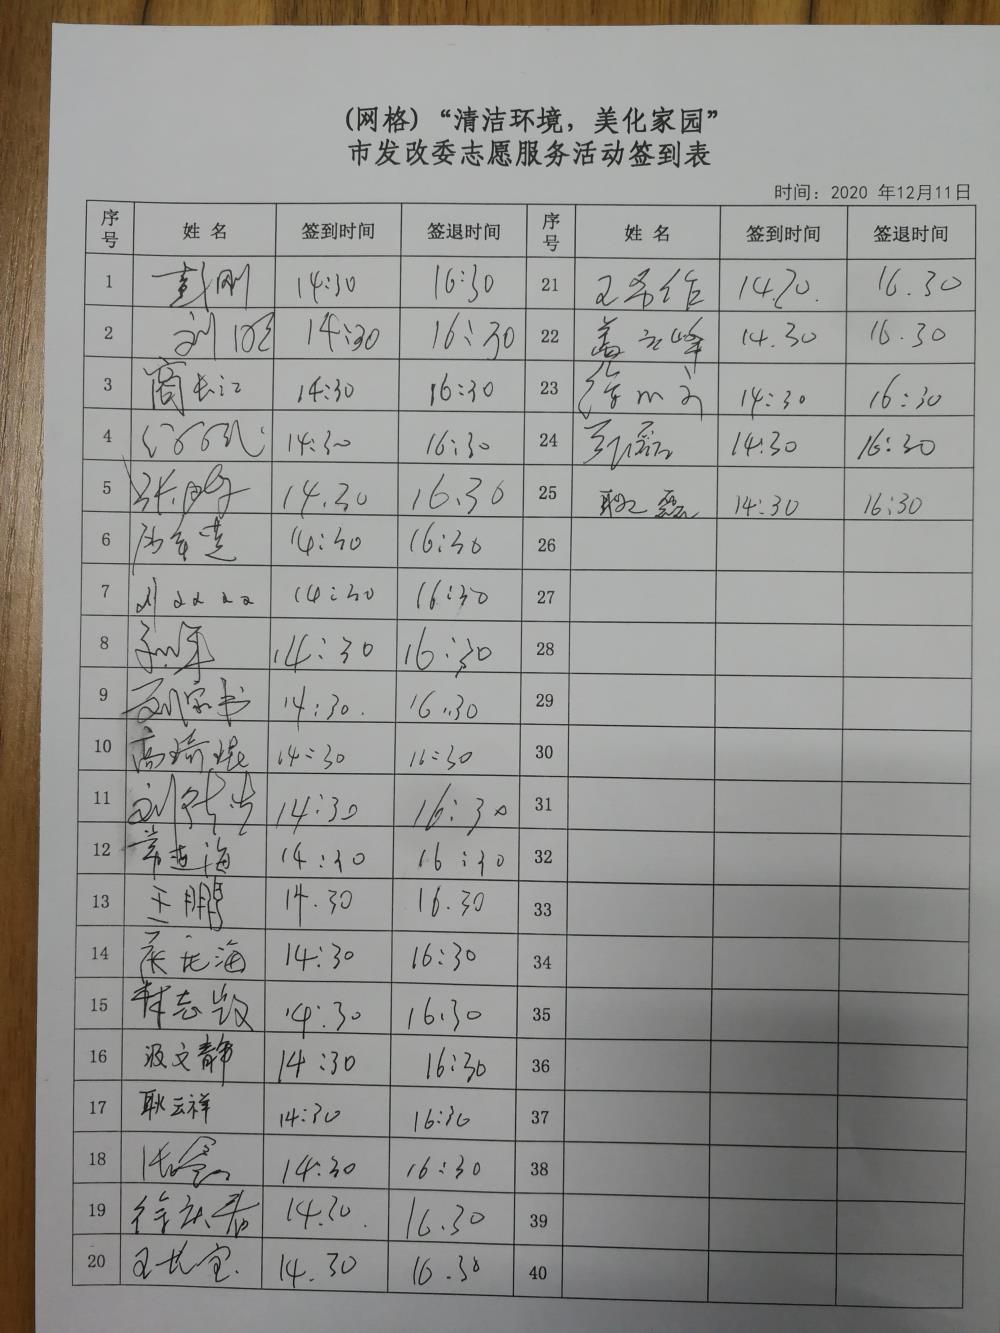 (网格)“清洁环境，美化家园”
市发改委志愿服务活动签到表
时间：2020 年12月11日
序号 姓 名 签到时间 签退时间 序号 姓 名 签到时间 签退时间
1 彭刚 14:30 16:30 21 14.30. 16.30
2 刘 14:30 16:30 22 盖 峰 14.30 16.30
3 商长江 14:30 16:30 23 14:30 16:30
4 14:30 16:30 24 14:30 16:30
5 张 14.30 16.30 25 耿磊 14:30 16:30
6 14:30 16:30 26
7 刘 14:30 16:30 27
8 孙军 14:30 16:30 28
9 刘家书 14:30. 16:30 29
10 高琦 14:30 16:30 30
11 刘 14:30 16:30 31
12 常连海 14:30 16:30 32
13 王鹏 14.30 16.30 33
14 海 14:30 16:30 34
15 林志毅 14:30 16:30 35
16 汲文静 14:30 16:30 36
17 耿云祥 14:30 16:30 37
18 张鑫 14:30 16:30 38
19 徐 14.30. 16.30 39
20 王 宝. 14.30 16.30 40